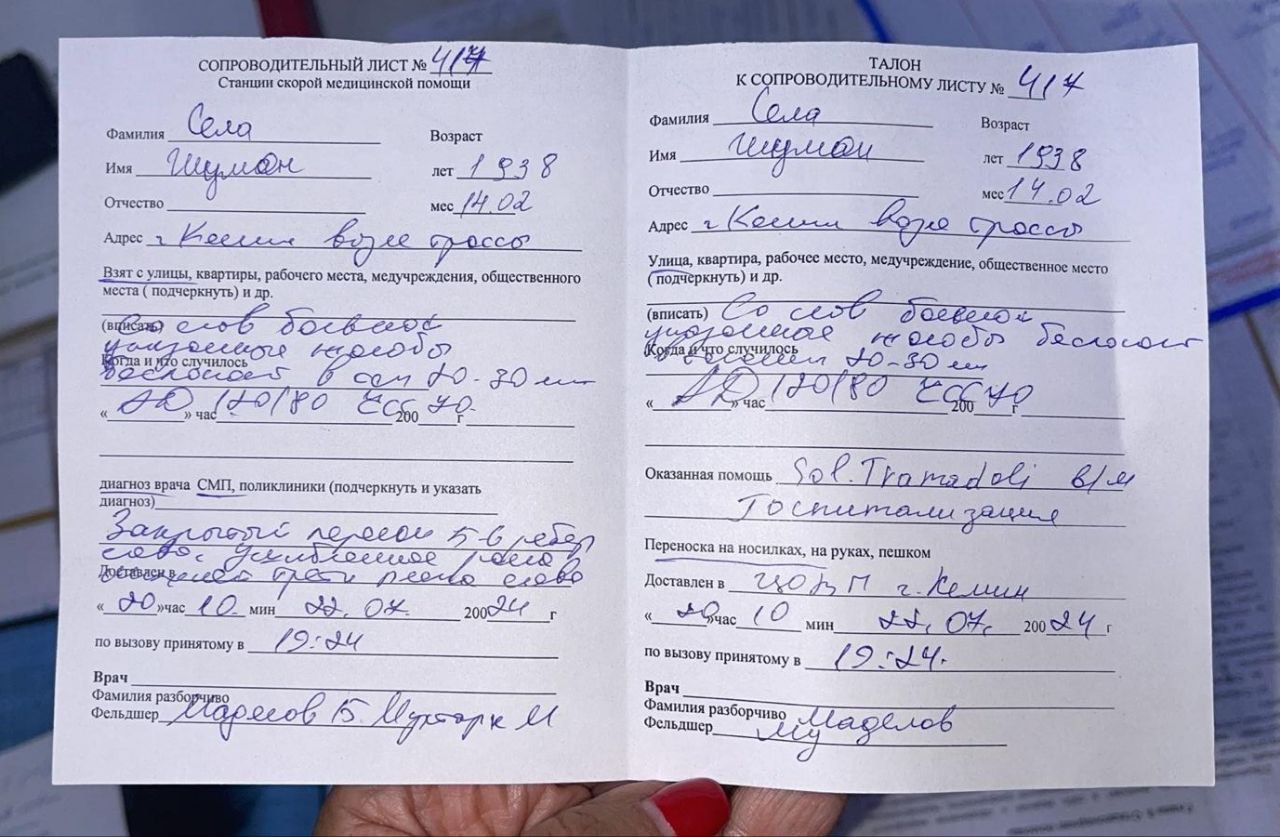 СОПРОВОДИТЕЛЬНЫЙ ЛИСТ № 417
Станции скорой медицинской помощи
Фамилия Села
Возраст
Имя Шуман
лет 1938
Отчество
мес 14.02
Адрес г Кемин возле трассы
Взят с улицы, квартиры, рабочего места, медучреждения, общественного
места ( подчеркнуть) и др.
(вписать) Со слов больной
указанные жалобы
Когда и что случилось
беспокоят в 20-30 мин
« АД 120/80 ЧСС 70
» час 200 г
диагноз врача СМП, поликлиники (подчеркнуть и указать
диагноз)
Закрытый перелом 5-6 ребер
слева. Ушибленная рана
трети слева
Доставлен в
« 20 »час 10 мин 22.07. 20024 г
по вызову принятому в 19:24
Врач
Фамилия разборчиво
Фельдшер М
ТАЛОН
К СОПРОВОДИТЕЛЬНОМУ ЛИСТУ № 417
Фамилия Села
Возраст
Имя Шуман
лет 1938
Отчество
мес 14.02
Адрес г Кемин возле трассы
Улица, квартира, рабочее место, медучреждение, общественное место
( подчеркнуть) и др.
(вписать) Со слов больной
указанные жалобы беспокоят
Когда и что случилось
20-30 мин
« АД 120/80 ЧСС 70
» час 200 г
Оказанная помощь Sol. Tramadoli в/м
Госпитализация
Переноска на носилках, на руках, пешком
Доставлен в ЦОВП г. Кемин
« 20 »час 10 мин 22. 07. 20024 г
по вызову принятому в 19:24.
Врач
Фамилия разборчиво Маделов
Фельдшер Му